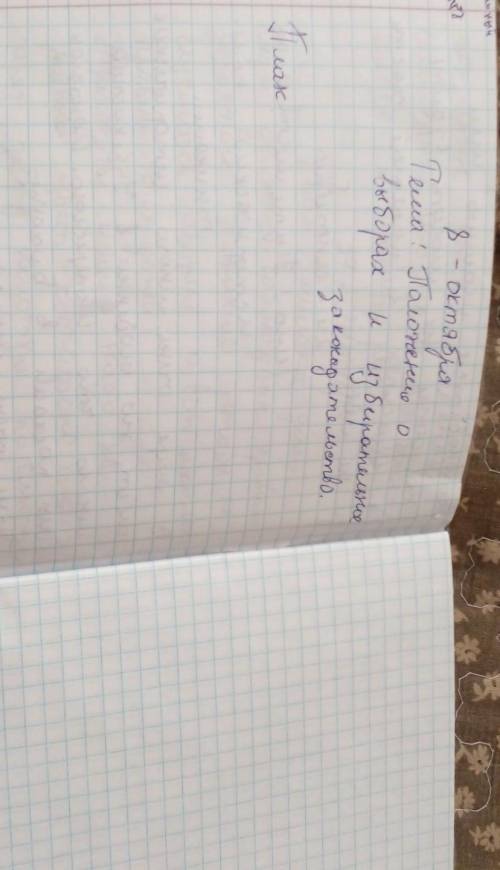 8 - октября
Тема: Положению о
выборах и избирательное
законадательство.
План